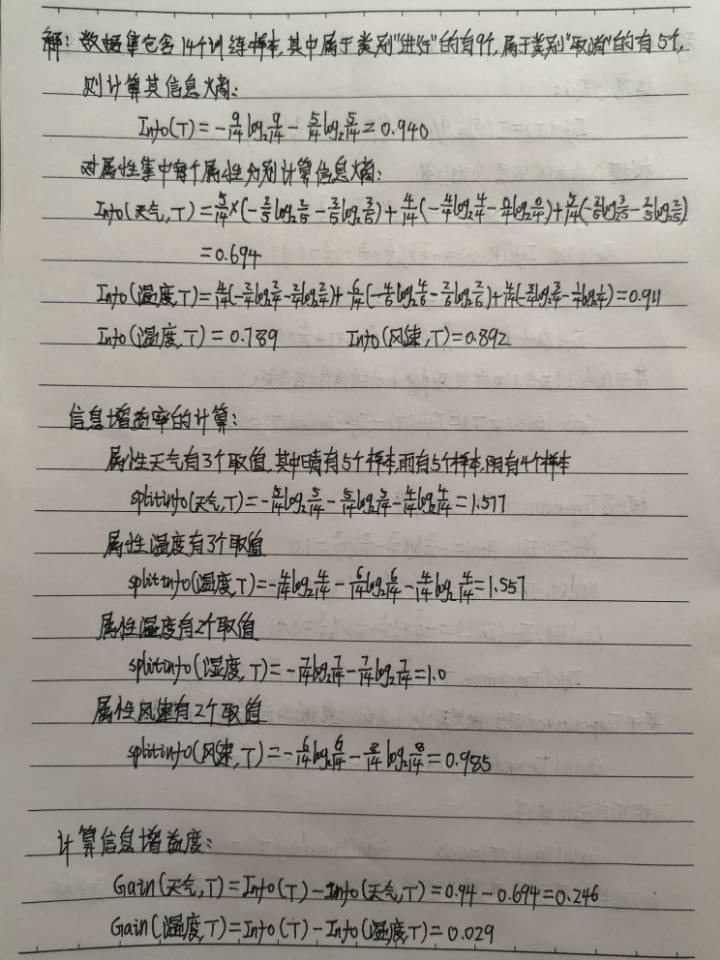 解：数据集包含14个训练样本，其中属于类别"进行"的有9个，属于类别"取消"的有5个，
则计算其信息熵：
Info(T)=-9/14log₂9/14-5/14log₂5/14=0.940
对属性集中每个属性分别计算信息熵：
Info(天气,T)=5/14×(-2/5log₂2/5-3/5log₂3/5)+4/14(-4/4log₂4/4-0/4log₂0/4)+5/14(-3/5log₂3/5-2/5log₂2/5)
=0.694
Info(温度,T)=4/14(-2/4log₂2/4-2/4log₂2/4)+6/14(-4/6log₂4/6-2/6log₂2/6)+4/14(-3/4log₂3/4-1/4log₂1/4)=0.911
Info(湿度,T)=0.789 Info(风速,T)=0.892
信息增益率的计算：
属性天气有3个取值，其中晴有5个样本，雨有5个样本，阴有4个样本
splitinfo(天气,T)=-5/14log₂5/14-5/14log₂5/14-4/14log₂4/14=1.577
属性温度有3个取值
splitinfo(温度,T)=-4/14log₂4/14-6/14log₂6/14-4/14log₂4/14=1.557
属性湿度有2个取值
splitinfo(湿度,T)=-7/14log₂7/14-7/14log₂7/14=1.0
属性风速有2个取值
splitinfo(风速,T)=-6/14log₂6/14-8/14log₂8/14=0.985
计算信息增益度：
Gain(天气,T)=Info(T)-Info(天气,T)=0.94-0.694=0.246
Gain(温度,T)=Info(T)-Info(温度,T)=0.029